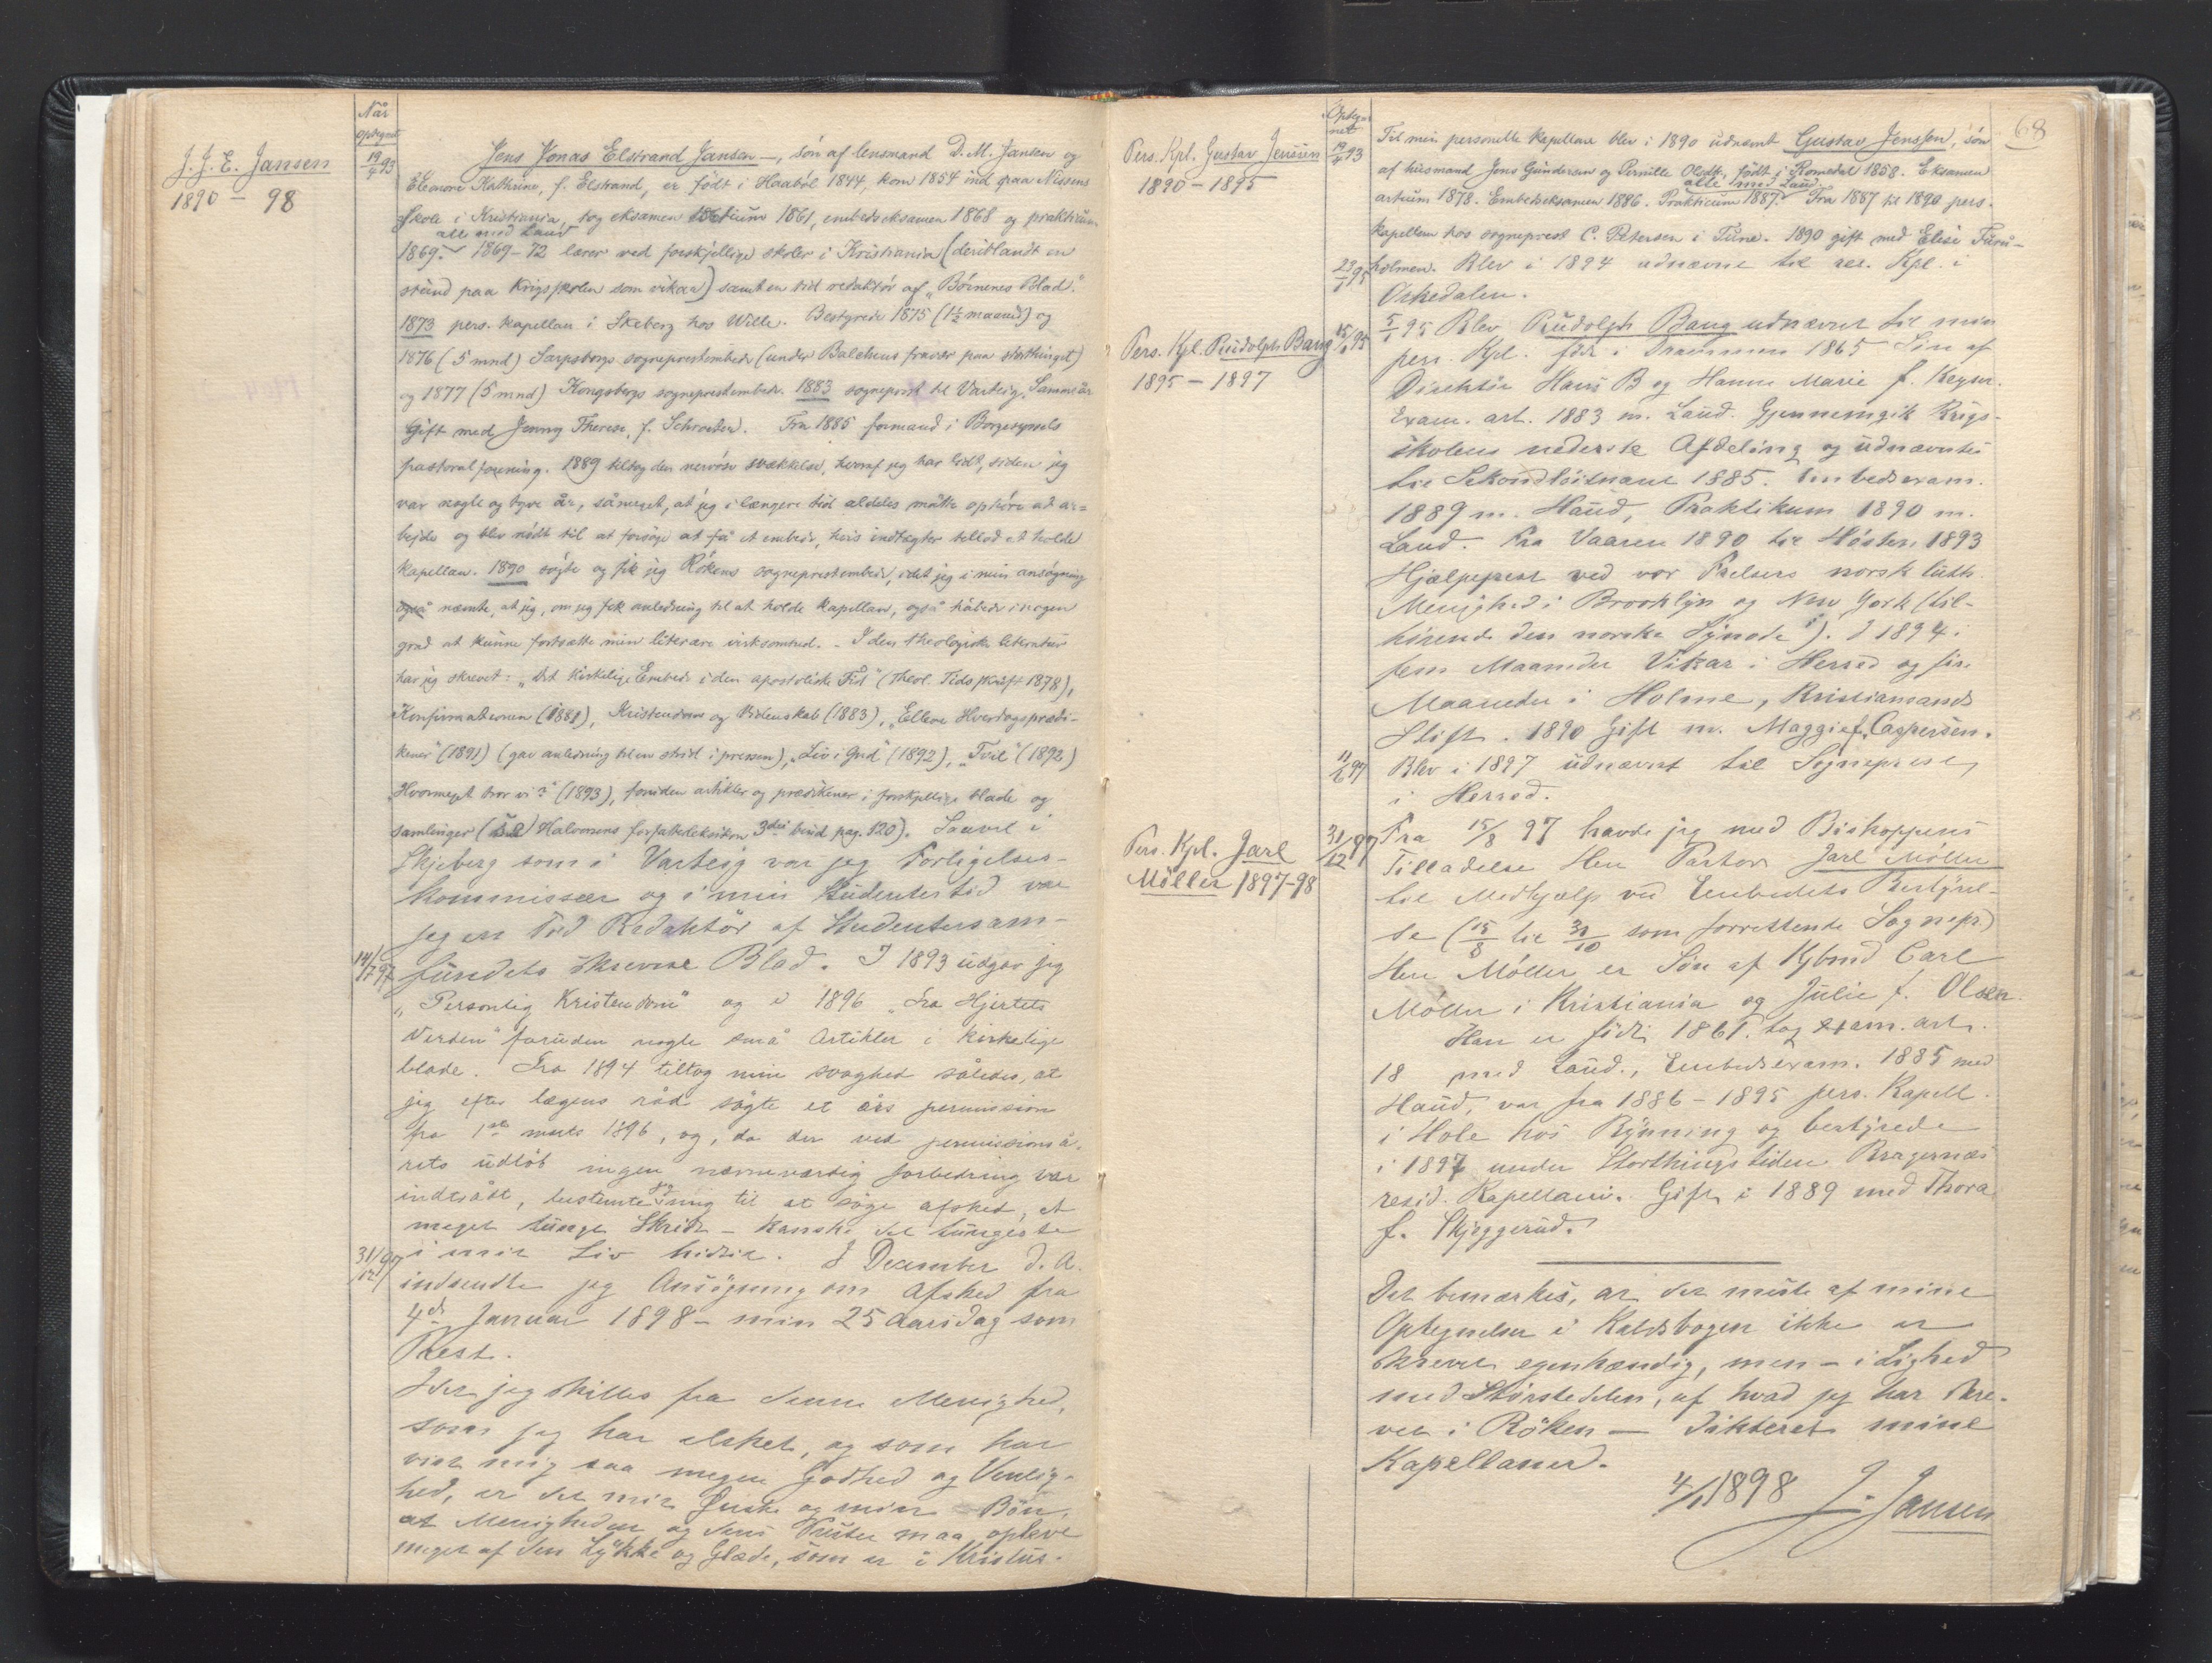 J. J. E. Jansen
1890 – 98
Når
optegnet
19/4 93
Jens Jonas Elstrand Jansen –, søn af lensmand D. M. Jansen og
Eleonore Kathrine, f. Elstrand, er født i Haabøl 1844, kom 1854 ind paa Nissens
Skole i Kristiania, tog eksamen artium 1861, embedseksamen 1868 og praktikum
alle med Laud
1869. 1869–72 lærer ved forskjellige skoler i Kristiania (deriblandt en
stund paa Krigsskolen som vikar) samt en tid redaktør af „Børnenes Blad“.
1873 pers. kapellan i Skeberg hos Wille. Bestyrede 1875 (1½ maaned) og
1876 (5 mnd) Sarpsborgs sogneprestembede (under Balchens fravær paa storthinget)
og 1877 (5 mnd) Kongsbergs sogneprestembede. 1883 sogneprest til Varteig. Samme år
Gift med Jenny Therese, f. Schroeter. Fra 1885 formand i Borgesyssels
pastoralforening. 1889 tiltog den nervøse svækkelse, hvoraf jeg har lidt, siden jeg
var nogle og tyve år, såmeget, at jeg i længere tid aldeles måtte ophøre at ar=
bejde og blev nødt til at forsøge at få et embede, hvis indtægter tillod at holde
Kapellan. 1890 søgte og fik jeg Røkens sogneprestembede, idet jeg i min ansøgning
også nævnte, at jeg, om jeg fik anledning til at holde kapellan, også håbede i nogen
grad at kunne fortsætte min literære virksomhed. – I den theologiske literatur
har jeg skrevet: „Det kirkelige Embede i den apostoliske Tid“ (Theol. Tidsskrift 1878),
Konfirmationen (1881), Kristendom og Videnskab (1883), „Elleve Hverdagsprædi-
kener“ (1891) (gav anledning til en strid i pressen), „Liv i Gud“ (1892), „Tvil“ (1892)
„Hvormeget tror vi?“ (1893), foruden artikler og prædikener i forskjellige blade og
samlinger (Se Halvorsens forfatterleksikon 3die bind pag. 120). Saavel i
Skjeberg som i Varteig var jeg Forligelses-
kommissær og i min Studentertid var
jeg en Tid Redaktør af Studentersam-
14/7 97
fundets skrevne Blad. I 1893 udgav jeg
„Personlig Kristendom“ og i 1896 „Fra Hjertets
Verden“ foruden nogle små Artikler i kirkelige
blade. Fra 1894 tiltog min svaghed således, at
jeg efter lægens råd søgte et års permission
fra 1ste marts 1896, og, da der ved permissionså-
rets udløb ingen nævneværdig forbedring var
indtrådt, bestemte jeg mig til at søge afsked, et
meget tungt Skridt – kanske det tungeste
31/12 97
i mit Liv hidtil. I December d. A.
indsendte jeg Ansøgning om Afsked fra
4de Januar 1898 – min 25 Aarsdag som
Prest.
Idet jeg skilles fra denne Menighed,
som jeg har elsket, og som har
vist mig saa megen Godhed og Venlig-
hed, er det mit Ønske og min Bøn,
at Menigheden og dens Prester maa opleve
meget af den Lykke og Glæde, som er i Kristus.
68
Opteg-
net
Pers. Kpl. Gustav Jenssen
1890 – 1895
19/4 93
Til min personelle kapellan blev i 1890 udnævnt Gustav Jensson, søn
af husmand Jens Gundersen og Pernille Olsdt., født i Romedal 1858. Eksamen
alle med Laud.
artium 1878. Embedseksamen 1886. Praktikum 1887. Fra 1887 til 1890 pers.
kapellan hos sogneprest C. Petersen i Tune. 1890 gift med Elise Furu-
23/1 95
holmen. Blev i 1894 udnævnt til res. Kpl. i
Orkedalen.
Pers. Kpl. Rudolph Bang
1895 – 1897
15/1 95
5/1 95 Blev Rudolph Bang udnævnt til min
pers. Kpl. født i Drammen 1865 Søn af
Direktør Hans B og Hanne Marie f. Keyser.
Exam. art. 1883 m. Laud. Gjennemgik Krigs-
skolens nederste Afdeling og udnævntes
til Sekondløitnant 1885. Embedsexam.
1889 m. Haud, Praktikum 1890 m.
Laud. Fra Vaaren 1890 til Høsten 1893
Hjælpeprest ved vor Frelsers norsk luth.
Menighed i Brooklyn og New York (til-
hørende den norske Synode). I 1894 i
fem Maaneder Vikar i Herred og fire
Maaneder i Holme, Kristiansands
Stift. 1890 Gift m. Maggie f. Caspersen.
11/6 97
Blev i 1897 udnævnt til Sogneprest
i Herred.
Pers. Kpl. Jarl
Möller 1897-98
31/12 97
Fra 15/8 97 havde jeg med Biskoppens
Tilladelse Herr Pastor Jarl Møller
til Medhjælp ved Embedets Bestyrel-
se (15/8 til 31/10 som forrettende Sognepr.)
Herr Møller er Søn af Kjbmd Carl
Møller i Kristiania og Julie f. Olsen.
Han er født 1861. tog exam. art.
18 med Laud., Embedsexam. 1885 med
Haud, var fra 1886 – 1895 pers. Kapell.
i Hole hos Rynning og bestyrede
i 1897 under Storthingstiden Bragernæs
resid. Kapellani. Gift i 1889 med Thora
f. Skjeggerud.
Det bemærkes, at det meste af mine
Optegnelser i Kaldsbogen ikke er
skrevet egenhændig, men – i Lighed
med Størstedelen, af hvad jeg har skre-
vet i Røken – dikteret mine
Kapellaner.
4/1 1898 J. Jansen